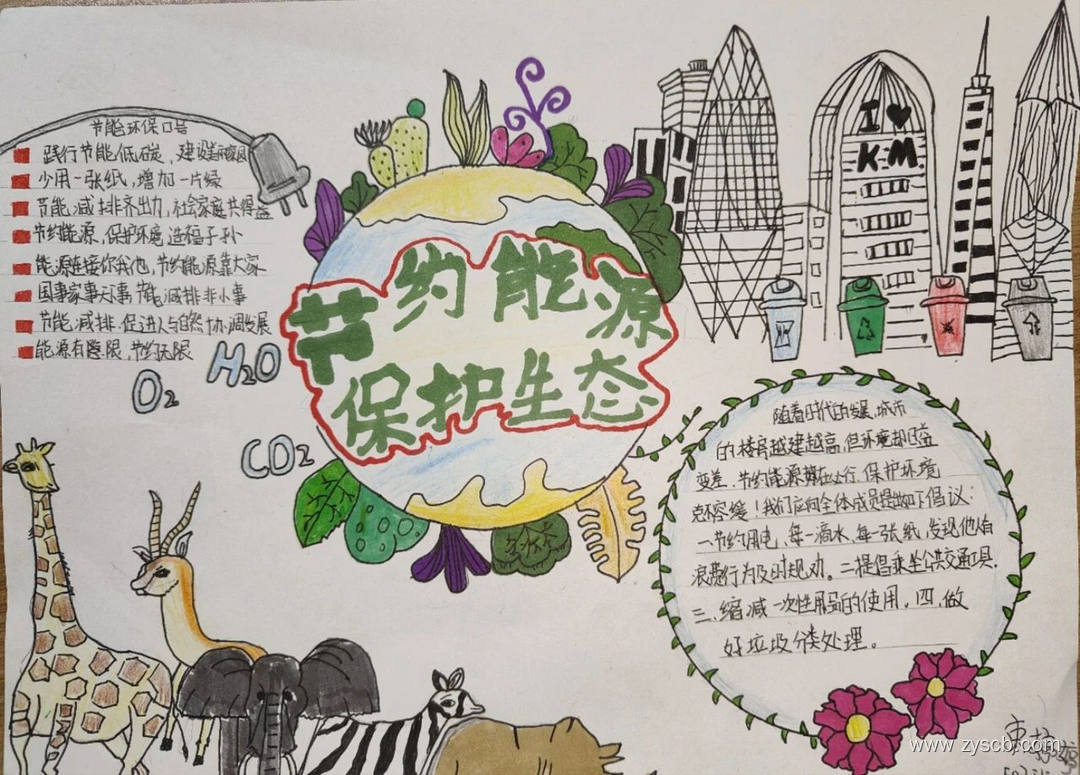 节能环保口号
践行节能低碳，建设美丽
少用一张纸，增加一片绿
节能减排齐出力，社会家庭共得益
节约能源，保护环境，造福子孙
能源连接你我他，节约能源靠大家
国事家事天下事节能减排非小事
节能减排，促进人与自然协调发展
能源有限，节约无限
O2
H2O
CO2
节约能源
保护生态
I ♥
K·M
随着时代的发展，城市
的楼房越建越高，但环境却日益
变差，节约能源势在必行，保护环境
刻不容缓！我们应向全体成员提出如下倡议：
一节约用电、每一滴水、每一张纸，发现他人有
浪费行为及时规劝。二提倡乘坐公共交通工具.
三、缩减一次性用品的使用。四、做
好垃圾分类处理。
www.zyscb.com